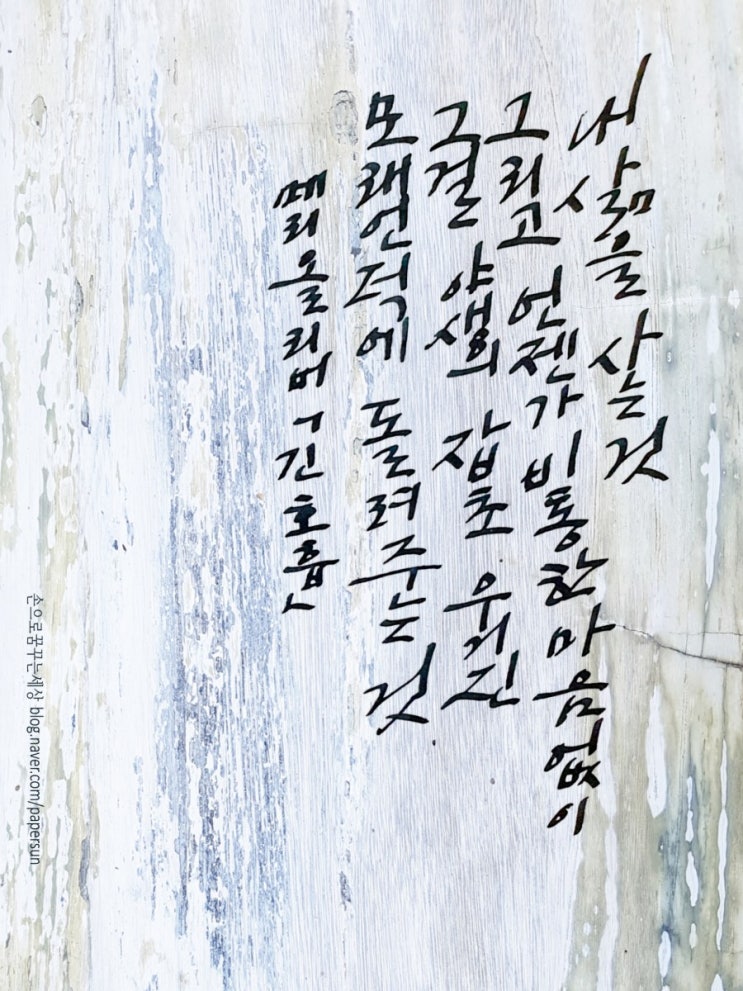 내 삶을 사는 것
그리고 언젠가 비통한 마음 없이
그걸 야생의 잡초 우거진
모래언덕에 돌려주는 것
메리 올리버 '긴 호흡'
손으로꿈꾸는세상 blog.naver.com/papersun